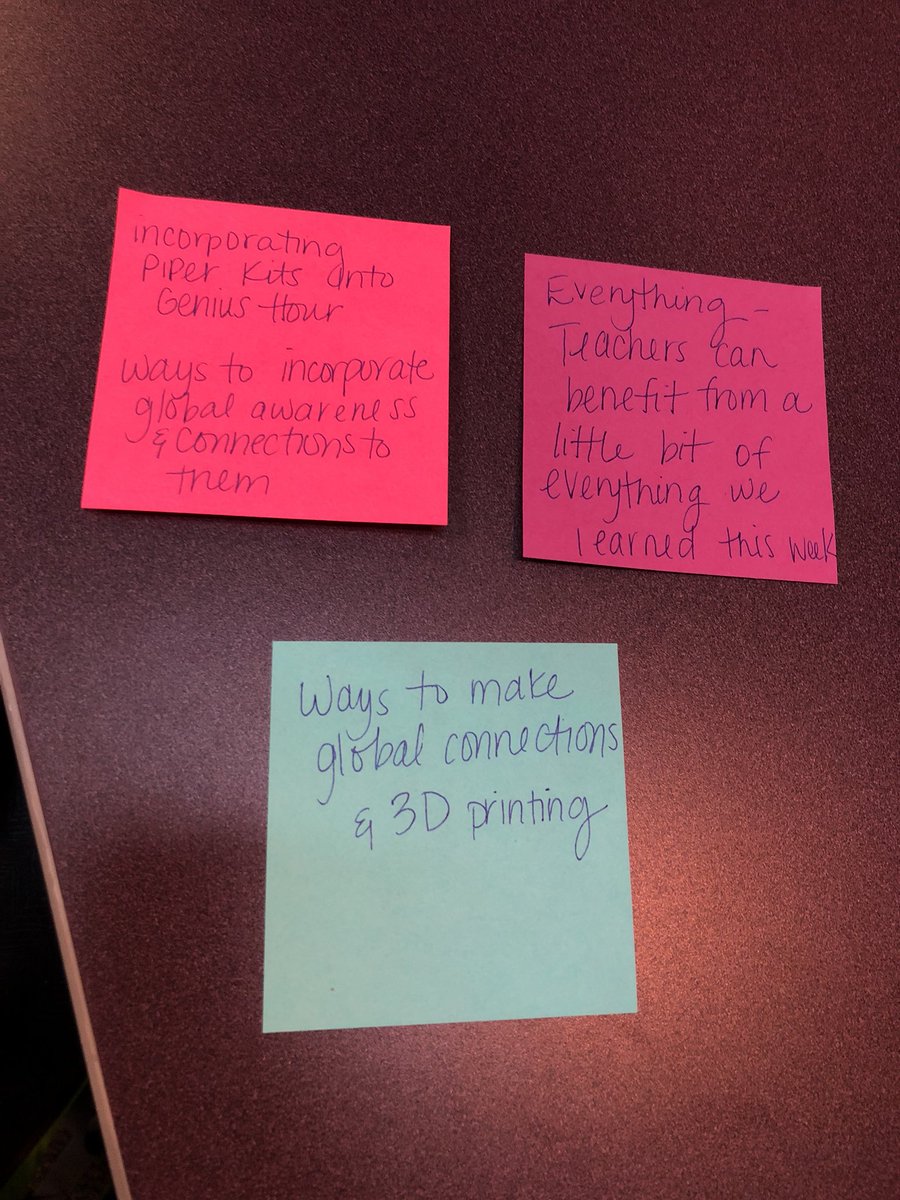 incorporating
Piper Kits into
Genius Hour
ways to incorporate
global awareness
& connections to
them
Everything –
Teachers can
benefit from a
little bit of
everything we
learned this week
Ways to make
global connections
& 3D printing